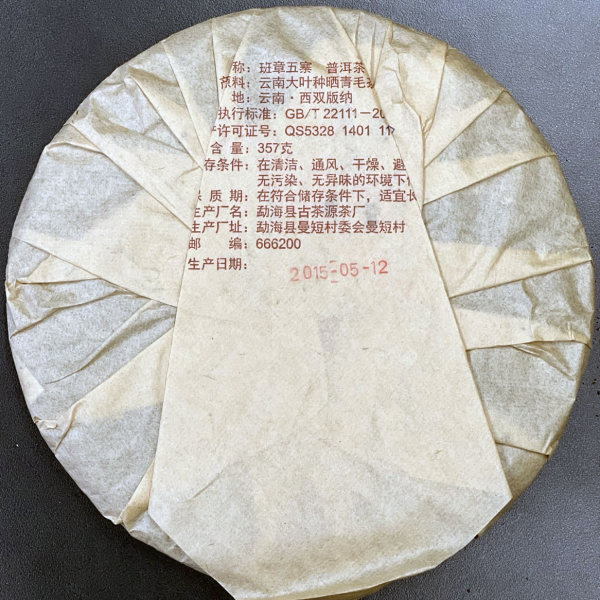 称：班章五寨 普洱茶
料：云南大叶种晒青毛茶
地：云南·西双版纳
执行标准：GB/T 22111-20
许可证号：QS5328 1401 11
含 量：357克
存条件：在清洁、通风、干燥、避
无污染、无异味的环境下
质 期：在符合储存条件下，适宜长
生产厂名：勐海县古茶源茶厂
生产厂址：勐海县曼短村委会曼短村
邮 编：666200
生产日期：
2015-05-12